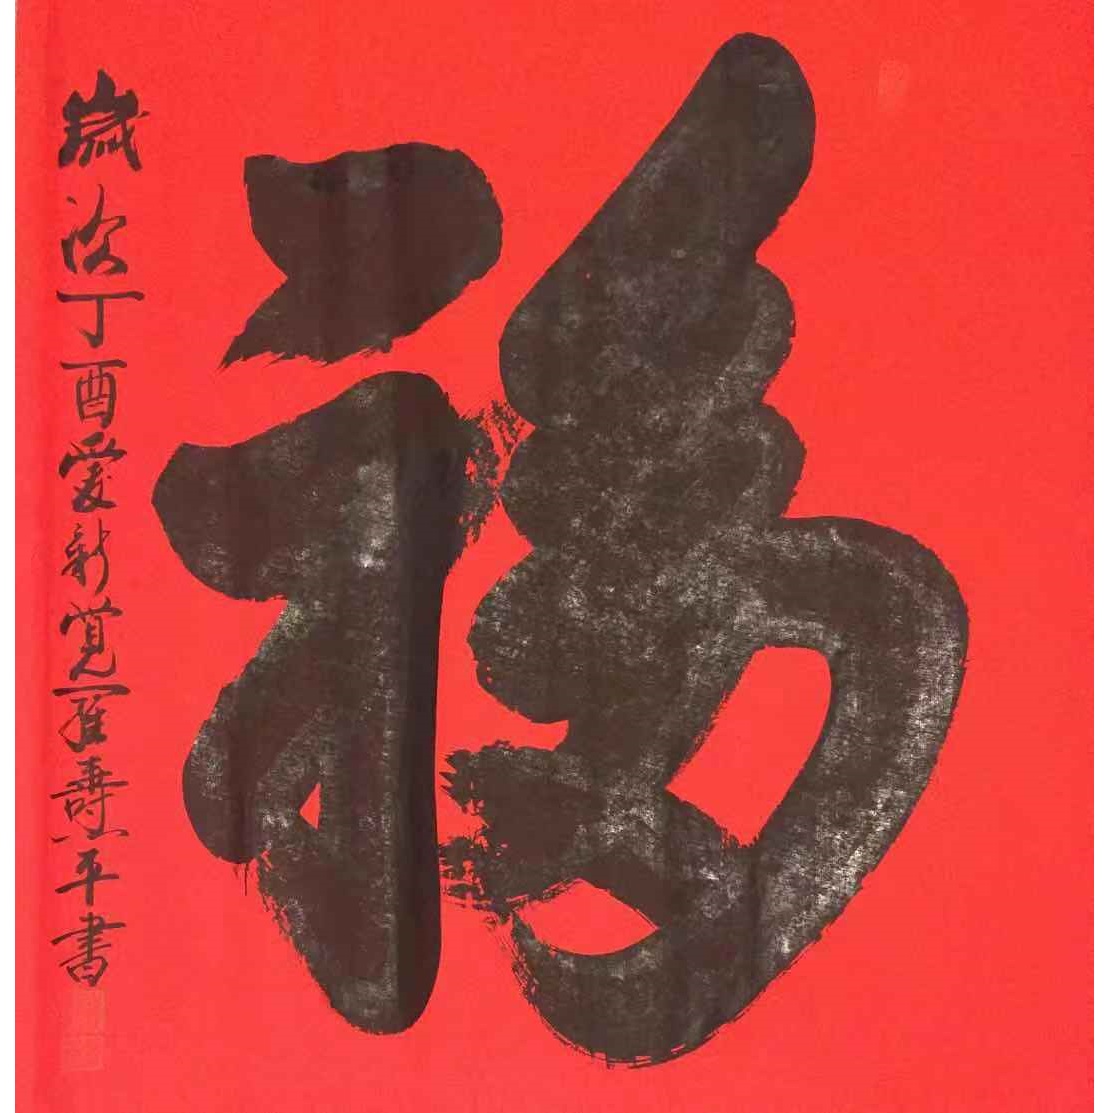 福
歲次丁酉愛新覺羅壽平書